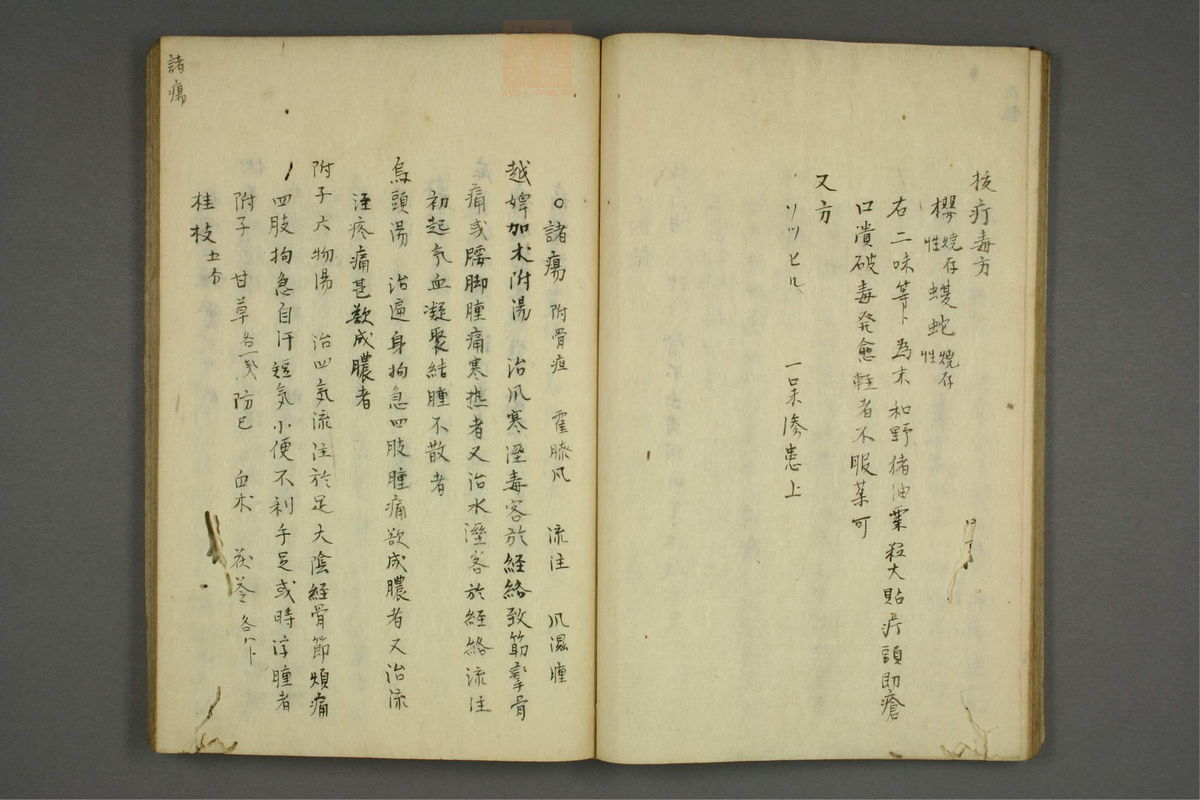 抜疔毒方
櫻焼存性 蝮蛇焼存性
右二味等卜為末和野猪油粟粒大貼疔頭即瘡
口潰破毒発愈軽者不服薬可
又方
ソツヒル 一味滲患上
諸瘍
○諸瘍 附骨疽 霍膝風 流注 風濕腫
越婢加朮附湯 治風寒溼毒客於経絡致筋攣骨
痛或腰脚腫痛寒熱者又治水溼客於経絡流注
初起気血凝聚結腫不散者
烏頭湯 治遍身拘急四肢腫痛欲成膿者又治流
注疼痛甚歎成膿者
附子六物湯 治四気流注於足太陰経骨節煩痛
四肢拘急自汗短気小便不利手足或時浮腫者
附子 甘草各一戔 防己 白朮 茯苓各八卜
桂枝五分